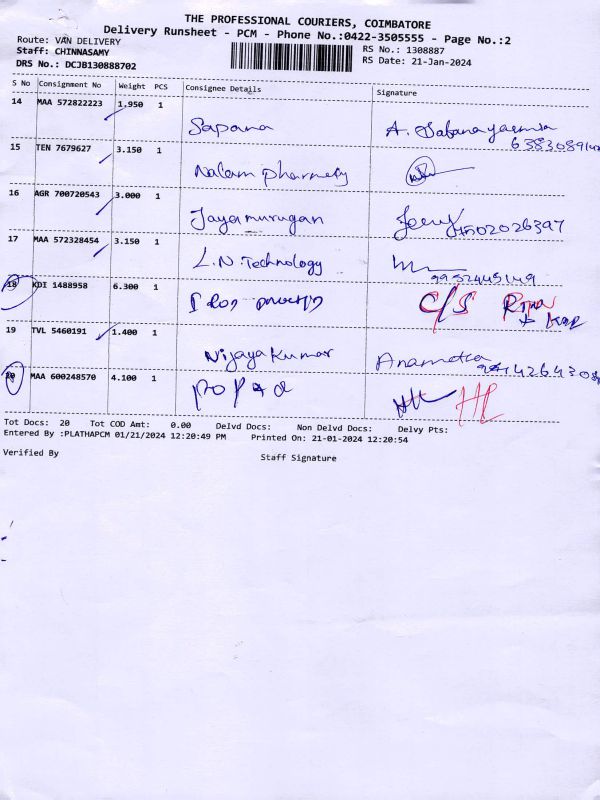 THE PROFESSIONAL COURIERS, COIMBATORE
Delivery Runsheet - PCM - Phone No.:0422-3505555 - Page No.:2
Route: VAN DELIVERY
Staff: CHINNASAMY
DRS No.: DCJB130888702
RS No.: 1308887
RS Date: 21-Jan-2024
S No Consignment No Weight PCS Consignee Details Signature
14 MAA 572822223 1.950 1
Sapana A.
15 TEN 7679627 3.150 1
Nalam pharmacy
16 AGR 700720543 3.000 1
Jayamurugan
17 MAA 572328454 3.150 1
L.N. Technology
9952445149
18 KDI 1488958 6.300 1
C/S
19 TVL 5460191 1.400 1
Vijayakumar
20 MAA 600248570 4.100 1
Tot Docs: 20 Tot COD Amt: 0.00 Delvd Docs: Non Delvd Docs: Delvy Pts:
Entered By :PLATHAPCM 01/21/2024 12:20:49 PM Printed On: 21-01-2024 12:20:54
Verified By Staff Signature